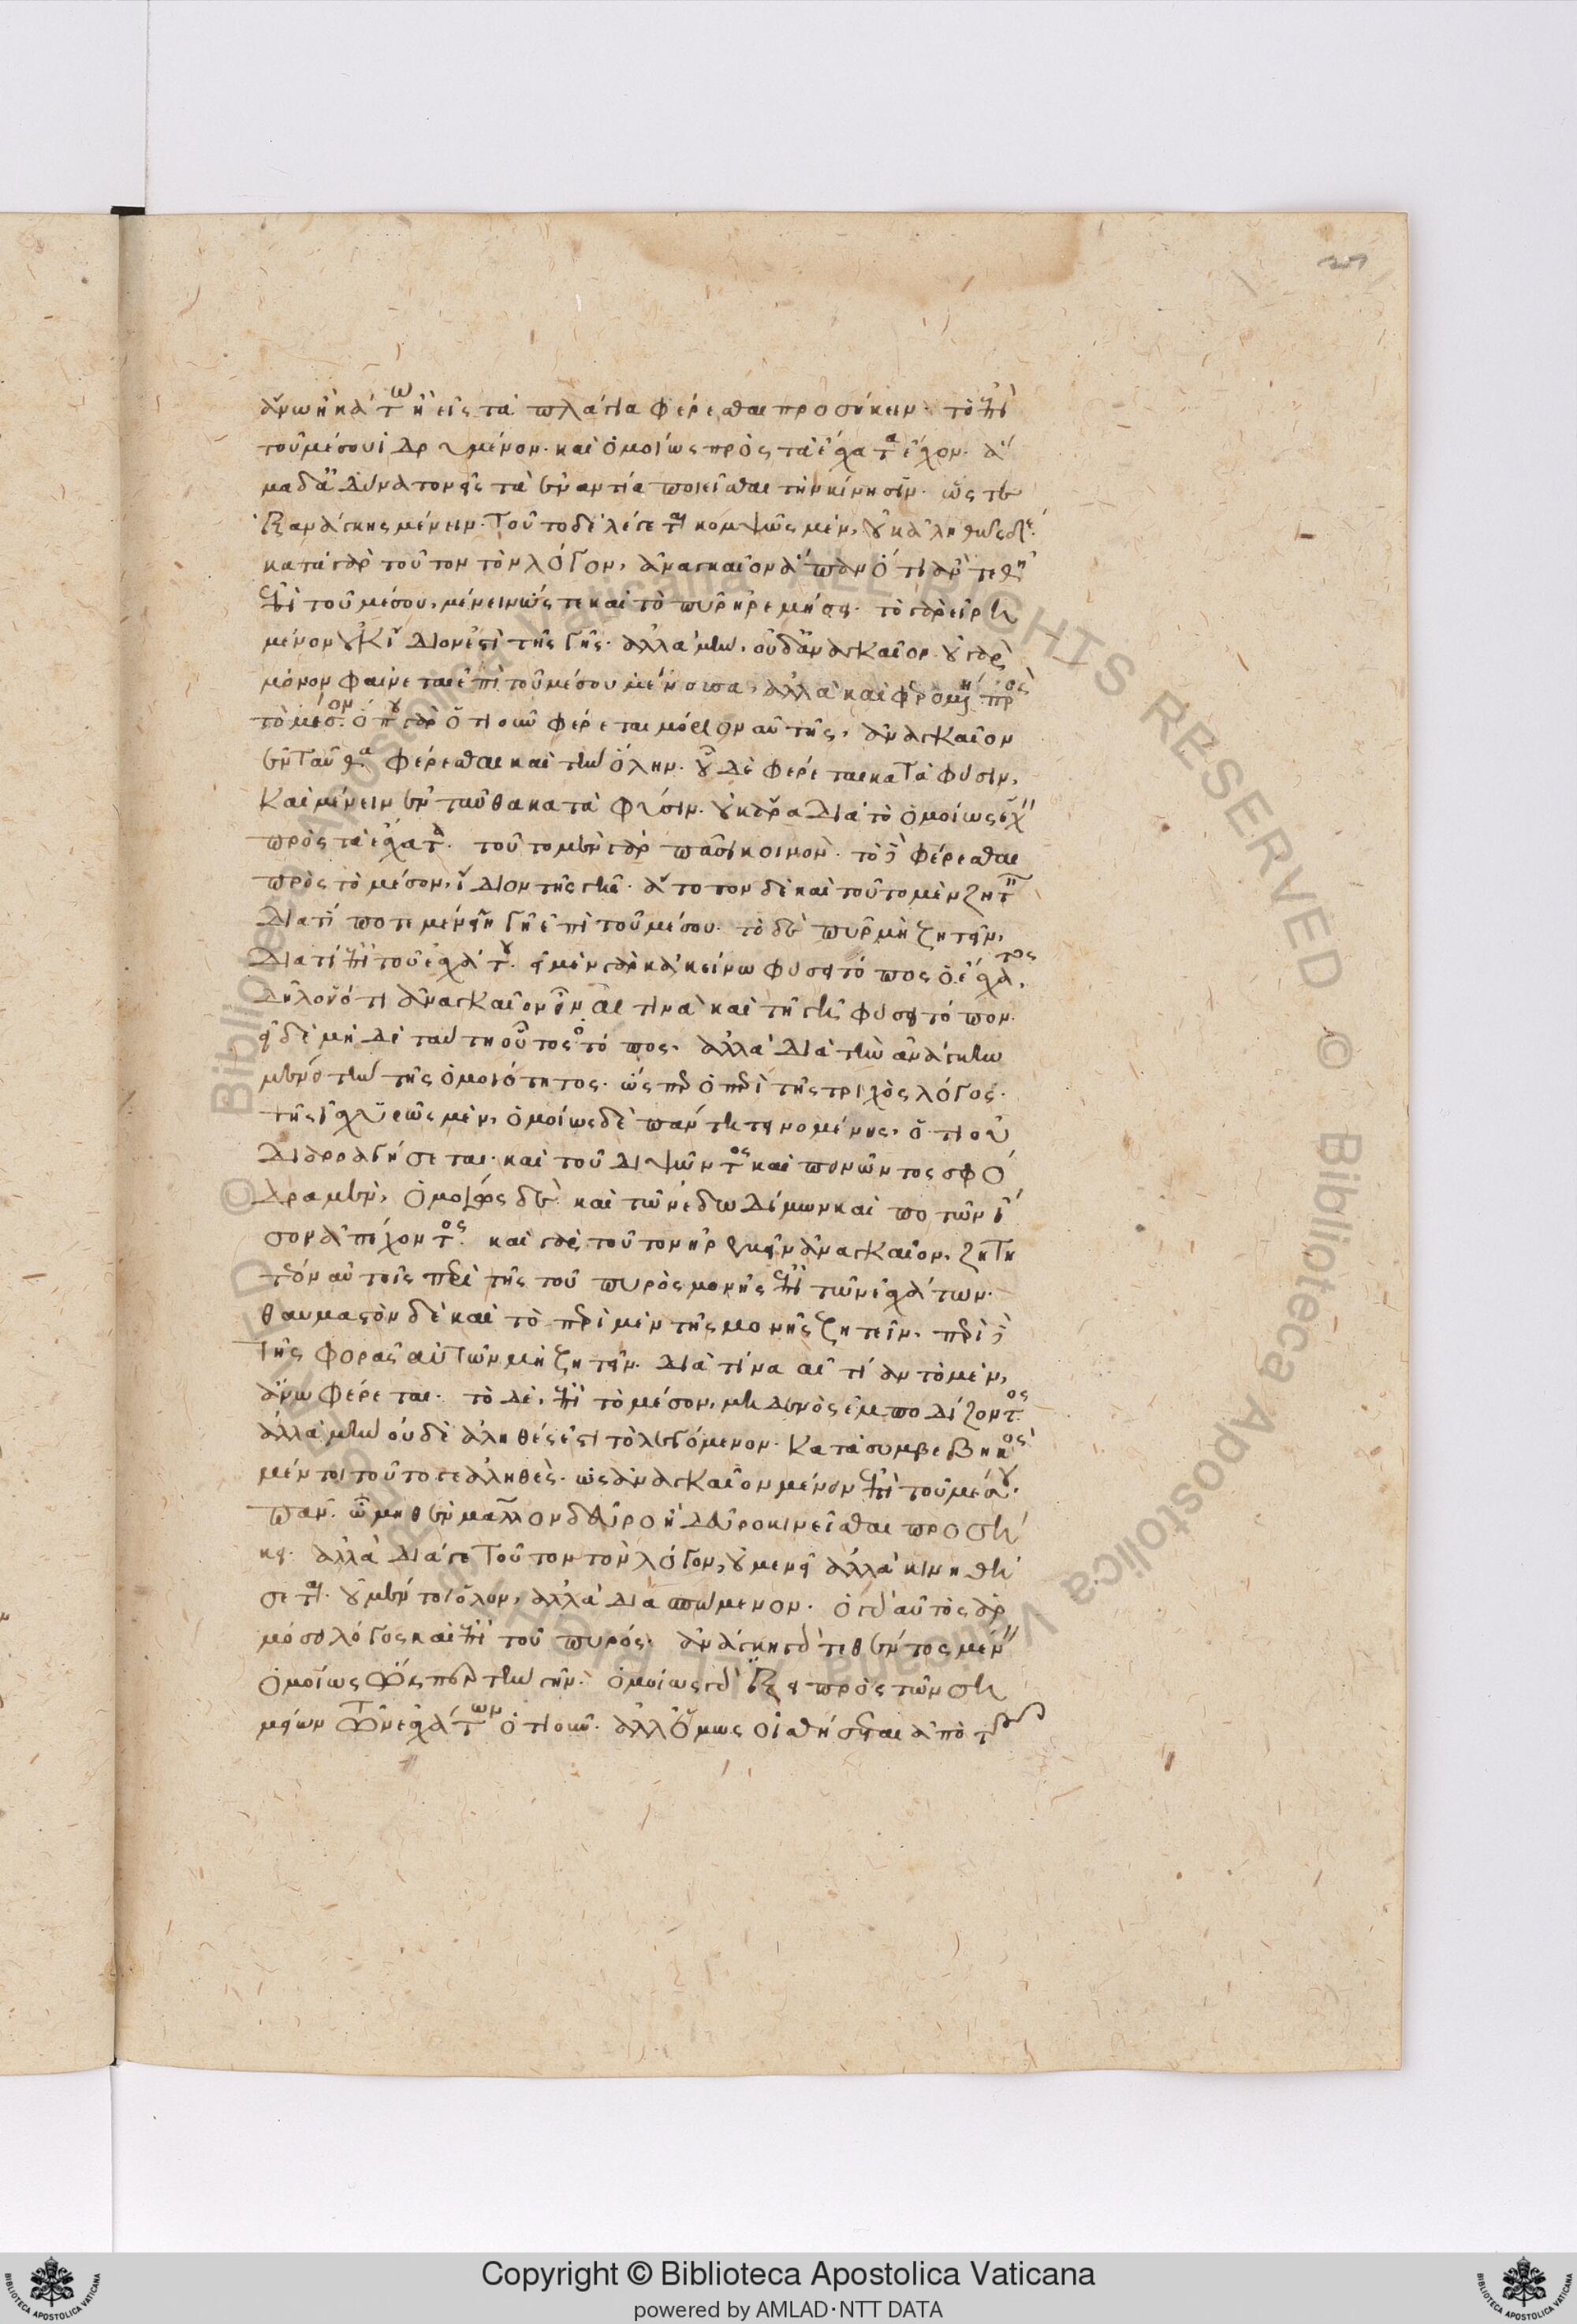 ἄνω ἢ κάτω ἢ εἰς τὰ πλάγια φέρεσθαι προσήκειν· τὸ ἐπὶ
τοῦ μέσου ἱδρυμένον· καὶ ὁμοίως πρὸς τὰ ἔσχατα ἔχον· ἅ
μα δ' ἀδύνατον εἰς τὰ ἐναντία ποιεῖσθαι τὴν κίνησιν· ὥστε
ἐξανάγκης μένειν. Τοῦτο δὲ λέγεται κομψῶς μὲν, οὐκ ἀληθῶς δέ·
κατὰ γὰρ τοῦτον τὸν λόγον, ἀναγκαῖον ἅπαν ὅ τι ἂν τεθῆ
ἐπὶ τοῦ μέσου, μένειν ὥστε καὶ τὸ πῦρ ἠρεμήσει· τὸ γὰρ εἰρη
μένον οὐκ ἴδιόν ἐστι τῆς γῆς· ἀλλὰ μὴν, οὐδ' ἀναγκαῖον· οὐ γὰρ
μόνον φαίνεται ἐπὶ τοῦ μέσου μένουσα, ἀλλὰ καὶ φερομένη πρὸς
τὸ μέσον· ὅπου γὰρ ὁτιοῦν φέρεται μέρος αὐτῆς, ἀναγκαῖον
ἐνταῦθα φέρεσθαι καὶ τὴν ὅλην· οὗ δὲ φέρεται κατὰ φύσιν,
καὶ μένειν ἐνταῦθα κατὰ φύσιν· οὐκ ἄρα διὰ τὸ ὁμοίως ἔχειν
πρὸς τὰ ἔσχατα· τοῦτο μὲν γὰρ πᾶσι κοινὸν· τὸ δὲ φέρεσθαι
πρὸς τὸ μέσον, ἴδιον τῆς γῆς· ἄτοπον δὲ καὶ τοῦτο μὲν ζητεῖν
διατί ποτε μένει ἡ γῆ ἐπὶ τοῦ μέσου· τὸ δὲ πῦρ μὴ ζητεῖν,
διατί ἐπὶ τοῦ ἐσχάτου· εἰ μὲν γὰρ κἀκείνω φύσει τόπος ὁ ἔσχατος,
δηλονότι ἀναγκαῖον εἶναι τινὰ καὶ τῆ γῆ φύσει τόπον·
εἰ δὲ μὴ δὲ ταύτη οὗτος ὁ τόπος· ἀλλὰ διὰ τὴν ἀνάγκην
μένει τὴν τῆς ὁμοιότητος· ὥσπερ ὁ περὶ τῆς τριχὸς λόγος·
τῆς ἰσχυρῶς μὲν, ὁμοίως δὲ πάντη τεινομένης, ὅτι οὐ
διαρραγήσεται· καὶ τοῦ διψῶντος καὶ πεινῶντος σφό
δρα μὲν, ὁμοίως δὲ· καὶ τῶν ἐδωδίμων καὶ ποτῶν ἴ
σον ἀπέχοντος· καὶ γὰρ τοῦτον ἠρεμεῖν ἀναγκαῖον, ζητη
τέον αὐτοῖς περὶ τῆς τοῦ πυρὸς μονῆς ἐπὶ τῶν ἐσχάτων·
θαυμαστὸν δὲ καὶ τὸ περὶ μὲν τῆς μονῆς ζητεῖν, περὶ δὲ
τῆς φορᾶς αὐτῶν μὴ ζητεῖν· διὰ τίνα αἰτίαν τὸ μὲν,
ἄνω φέρεται· τὸ δὲ, ἐπὶ τὸ μέσον, μηδενὸς ἐμποδίζοντος·
ἀλλὰ μὴν οὐδὲ ἀληθές ἐστι τὸ λεγόμενον· κατὰ συμβεβηκὸς
μέντοι τοῦτο γε ἀληθὲς· ὡς ἀναγκαῖον μένειν ἐπὶ τοῦ μέσου·
πᾶν· ὧ μηθὲν μᾶλλον δεῦρο ἢ δεῦρο κινεῖσθαι προσή
κει· ἀλλὰ διά γε τοῦτον τὸν λόγον, οὐ μένει ἀλλὰ κινηθή
σεται· οὐ μέντοι ὅλον, ἀλλὰ διασπώμενον· ὁ γὰρ αὐτὸς ἁρ
μόσει λόγος καὶ ἐπὶ τοῦ πυρός· ἀνάγκη γὰρ τεθέντος μένειν
ὁμοίως ὥσπερ τὴν γῆν· ὁμοίως γὰρ ἕξει πρὸς τῶν ση
μείων τῶν ἐσχάτων ὁτιοῦν· ἀλλ' ὅμως οἰσθήσεται ἀπὸ τοῦ